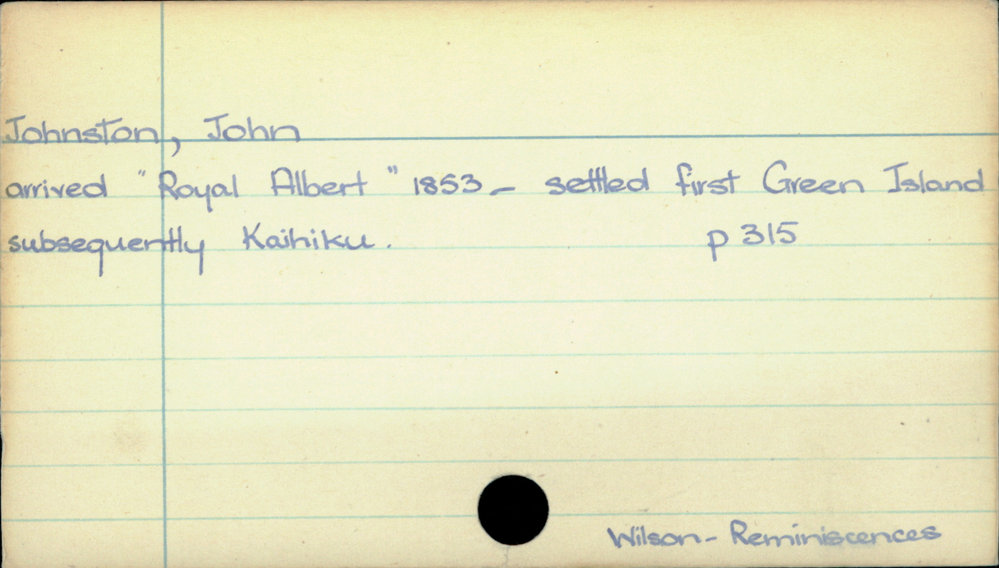 Johnston, John
arrived "Royal Albert" 1853 - settled first Green Island
subsequently Kaihiku. p 315
Wilson - Reminiscences